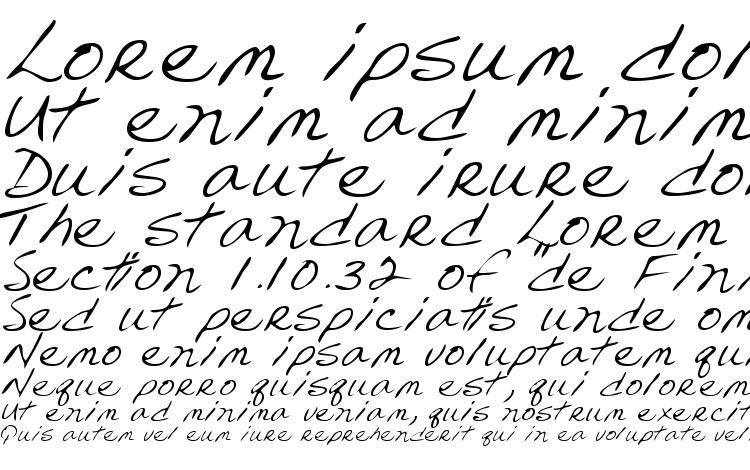 Lorem ipsum dol
Ut enim ad minim
Duis aute irure do
The standard Lorem
Section 1.10.32 of "de Fin
Sed ut perspiciatis unde om
Nemo enim ipsam voluptatem qu
Neque porro quisquam est, qui dolorem
Ut enim ad minima veniam, quis nostrum exercit
Quis autem vel eum iure reprehenderit qui in ea voluptate vel